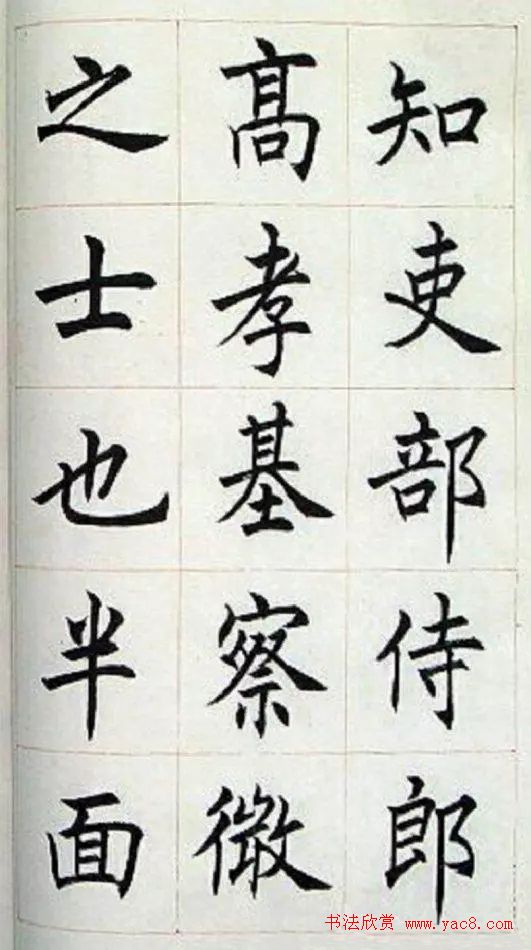 知吏部侍郎
髙孝基察微
之士也半面
书法欣赏 www.yac8.com